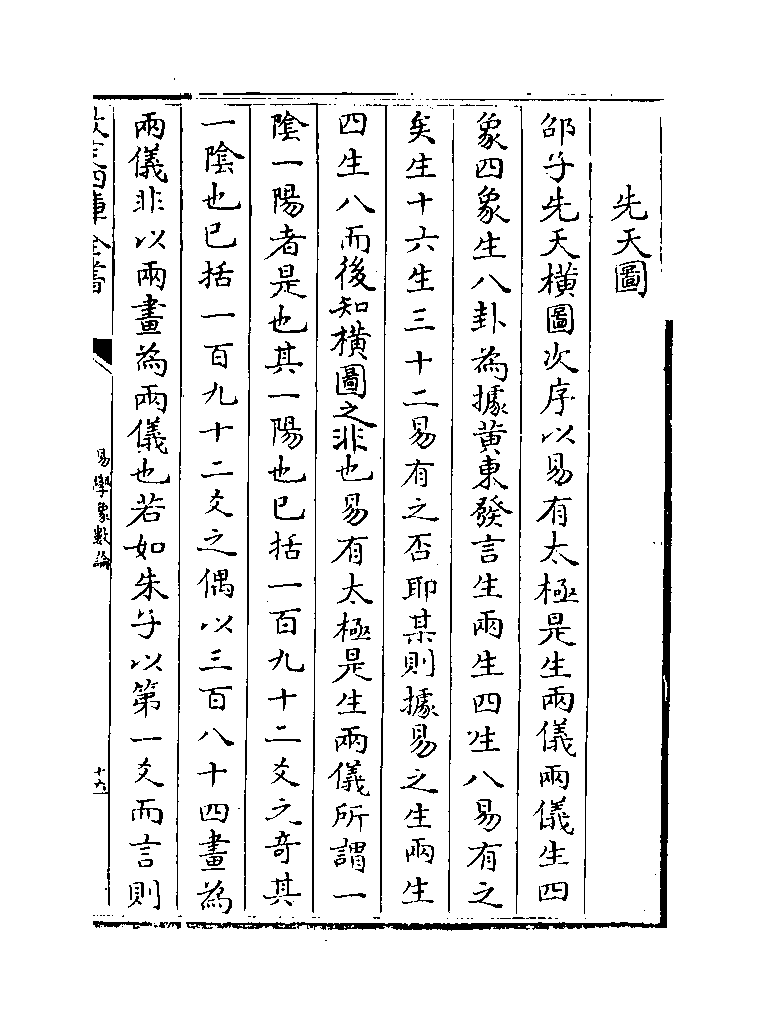 先天圖
邵子先天橫圖次序以易有太極是生兩儀兩儀生四
象四象生八卦為據黃東發言生兩生四生八易有之
矣生十六生三十二易有之否耶某則據易之生兩生
四生八而後知橫圖之非也易有太極是生兩儀所謂一
陰一陽者是也其一陽也已括一百九十二爻之奇其
一陰也已括一百九十二爻之偶以三百八十四畫為
兩儀非以兩畫為兩儀也若如朱子以第一爻而言則
欽定四庫全書
易學象數論
十六